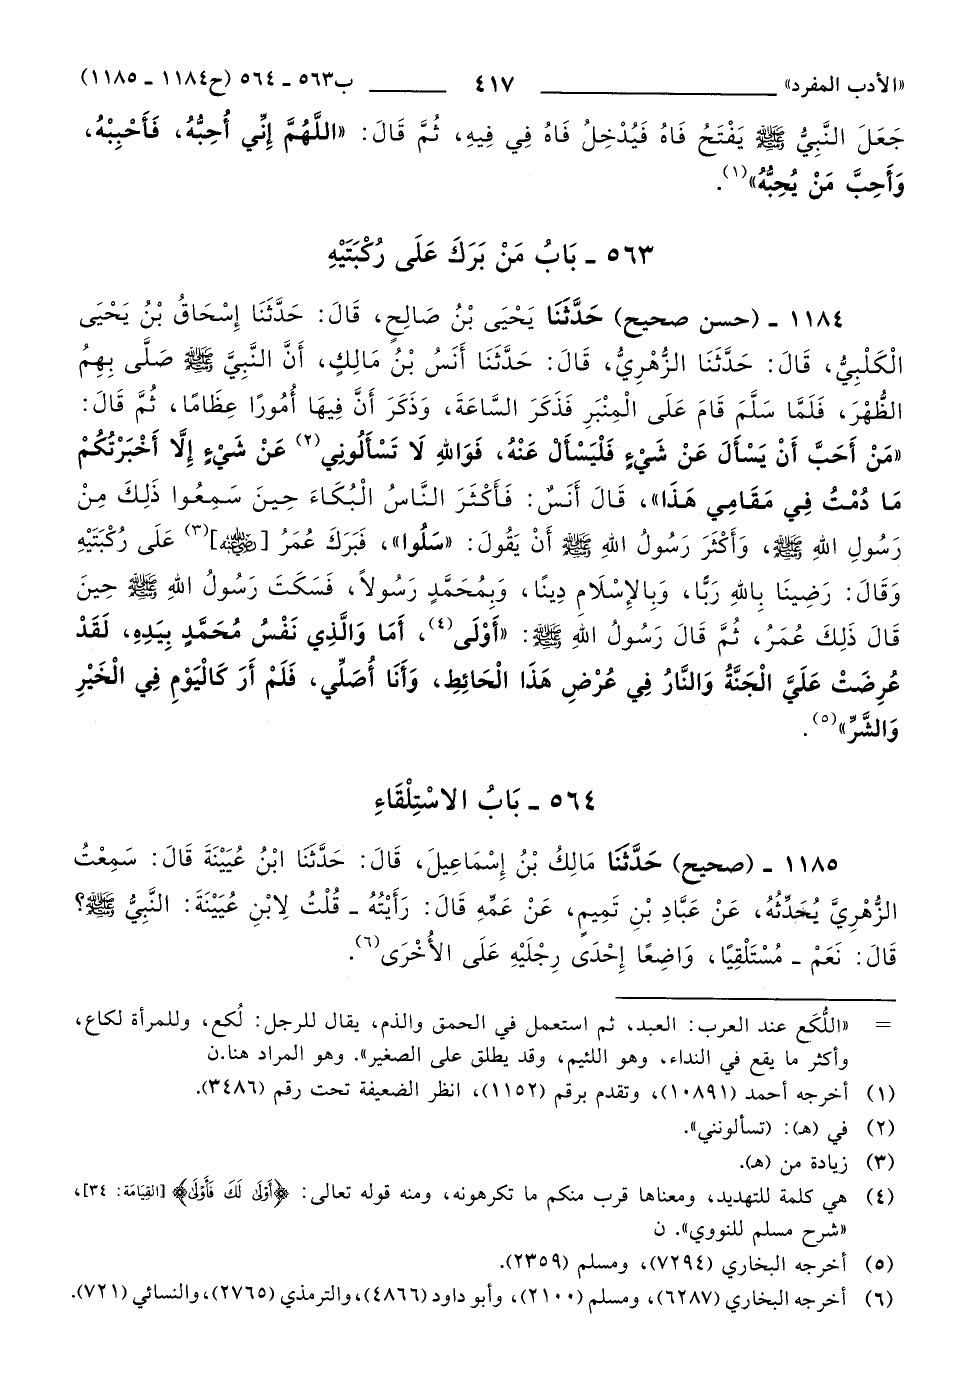 «الأدب المفرد» ٤١٧ ب٥٦٣ ـ ٥٦٤ (ح١١٨٤ ـ ١١٨٥)
جَعَلَ النَّبِيُّ ﷺ يَفْتَحُ فَاهُ فَيُدْخِلُ فَاهُ فِي فِيهِ، ثُمَّ قَالَ: «اللَّهُمَّ إِنِّي أُحِبُّهُ، فَأَحْبِبْهُ،
وَأَحِبَّ مَنْ يُحِبُّهُ»(١).
٥٦٣ ـ بَابُ مَنْ بَرَكَ عَلَى رُكْبَتَيْهِ
١١٨٤ ـ (حسن صحيح) حَدَّثَنَا يَحْيَى بْنُ صَالِحٍ، قَالَ: حَدَّثَنَا إِسْحَاقُ بْنُ يَحْيَى
الْكَلْبِيُّ، قَالَ: حَدَّثَنَا الزُّهْرِيُّ، قَالَ: حَدَّثَنَا أَنَسُ بْنُ مَالِكٍ، أَنَّ النَّبِيَّ ﷺ صَلَّى بِهِمُ
الظُّهْرَ، فَلَمَّا سَلَّمَ قَامَ عَلَى الْمِنْبَرِ فَذَكَرَ السَّاعَةَ، وَذَكَرَ أَنَّ فِيهَا أُمُورًا عِظَامًا، ثُمَّ قَالَ:
«مَنْ أَحَبَّ أَنْ يَسْأَلَ عَنْ شَيْءٍ فَلْيَسْأَلْ عَنْهُ، فَوَاللهِ لَا تَسْأَلُونِي(٢) عَنْ شَيْءٍ إِلَّا أَخْبَرْتُكُمْ
مَا دُمْتُ فِي مَقَامِي هَذَا»، قَالَ أَنَسٌ: فَأَكْثَرَ النَّاسُ الْبُكَاءَ حِينَ سَمِعُوا ذَلِكَ مِنْ
رَسُولِ اللهِ ﷺ، وَأَكْثَرَ رَسُولُ اللهِ ﷺ أَنْ يَقُولَ: «سَلُوا»، فَبَرَكَ عُمَرُ [رضي الله عنه](٣) عَلَى رُكْبَتَيْهِ
وَقَالَ: رَضِينَا بِاللهِ رَبًّا، وَبِالإِسْلَامِ دِينًا، وَبِمُحَمَّدٍ رَسُولاً، فَسَكَتَ رَسُولُ اللهِ ﷺ حِينَ
قَالَ ذَلِكَ عُمَرُ، ثُمَّ قَالَ رَسُولُ اللهِ ﷺ: «أَوْلَى(٤)، أَمَا وَالَّذِي نَفْسُ مُحَمَّدٍ بِيَدِهِ، لَقَدْ
عُرِضَتْ عَلَيَّ الْجَنَّةُ وَالنَّارُ فِي عُرْضِ هَذَا الْحَائِطِ، وَأَنَا أُصَلِّي، فَلَمْ أَرَ كَالْيَوْمِ فِي الْخَيْرِ
وَالشَّرِّ»(٥).
٥٦٤ ـ بَابُ الاسْتِلْقَاءِ
١١٨٥ ـ (صحيح) حَدَّثَنَا مَالِكُ بْنُ إِسْمَاعِيلَ، قَالَ: حَدَّثَنَا ابْنُ عُيَيْنَةَ قَالَ: سَمِعْتُ
الزُّهْرِيَّ يُحَدِّثُهُ، عَنْ عَبَّادِ بْنِ تَمِيمٍ، عَنْ عَمِّهِ قَالَ: رَأَيْتُهُ ـ قُلْتُ لِابْنِ عُيَيْنَةَ: النَّبِيُّ ﷺ؟
قَالَ: نَعَمْ ـ مُسْتَلْقِيًا، وَاضِعًا إِحْدَى رِجْلَيْهِ عَلَى الأُخْرَى(٦).
= «اللُّكَع عند العرب: العبد، ثم استعمل في الحمق والذم، يقال للرجل: لُكع، وللمرأة لكاع،
وأكثر ما يقع في النداء، وهو اللئيم، وقد يطلق على الصغير». وهو المراد هنا.ن
(١) أخرجه أحمد (١٠٨٩١)، وتقدم برقم (١١٥٢)، انظر الضعيفة تحت رقم (٣٤٨٦).
(٢) في (هـ): (تسألونني».
(٣) زيادة من (هـ).
(٤) هي كلمة للتهديد، ومعناها قرب منكم ما تكرهونه، ومنه قوله تعالى: ﴿أَوْلَى لَكَ فَأَوْلَى﴾ [القِيَامَة: ٣٤]،
«شرح مسلم للنووي». ن
(٥) أخرجه البخاري (٧٢٩٤)، ومسلم (٢٣٥٩).
(٦) أخرجه البخاري (٦٢٨٧)، ومسلم (٢١٠٠)، وأبو داود (٤٨٦٦)، والترمذي (٢٧٦٥)، والنسائي (٧٢١).